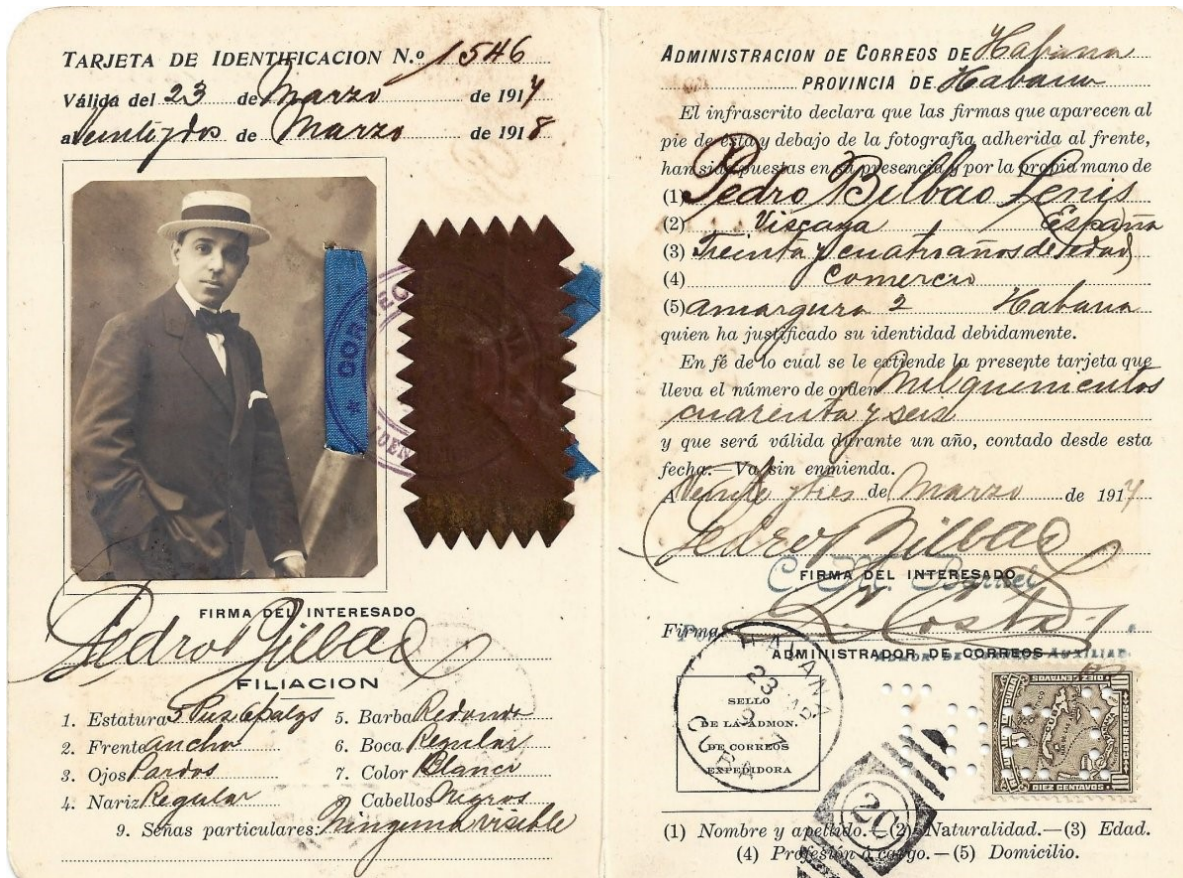 TARJETA DE IDENTIFICACION N.º 1546
Válida del 23 de Marzo de 1917
a Veintidos de Marzo de 1918
CORRE
FIRMA DEL INTERESADO
Pedro Bilbao
FILIACION
1. Estatura 5 Pies 6 palgs 5. Barba Redonda
2. Frente ancha 6. Boca Regular
3. Ojos Pardos 7. Color Blanco
4. Nariz Regular Cabellos Negros
9. Señas particulares: Ninguna visible
ADMINISTRACION DE CORREOS DE Habana
PROVINCIA DE Habana
El infrascrito declara que las firmas que aparecen al
pie de ésta y debajo de la fotografía adherida al frente,
han sido puestas en su presencia y por la propia mano de
(1) Pedro Bilbao
(2) Viscaya España
(3) Treinta y cuatro años de edad
(4) Comercio
(5) amargura 2 Habana
quien ha justificado su identidad debidamente.
En fé de lo cual se le extiende la presente tarjeta que
lleva el número de orden Mil quinientos
cuarenta y seis
y que será válida durante un año, contado desde esta
fecha.—Va sin enmienda.
A Veinte y tres de Marzo de 1917
Pedro Bilbao
FIRMA DEL INTERESADO
Firma Costa
ADMINISTRADOR DE CORREOS AUXILIAR
HABANA
23
CUBA
SELLO
DE LA ADMON.
DE CORREOS
EXPEDIDORA
20
CUBA
DIEZ CENTAVOS
(1) Nombre y apellido.—(2) Naturalidad.—(3) Edad.
(4) Profesión ó cargo.—(5) Domicilio.